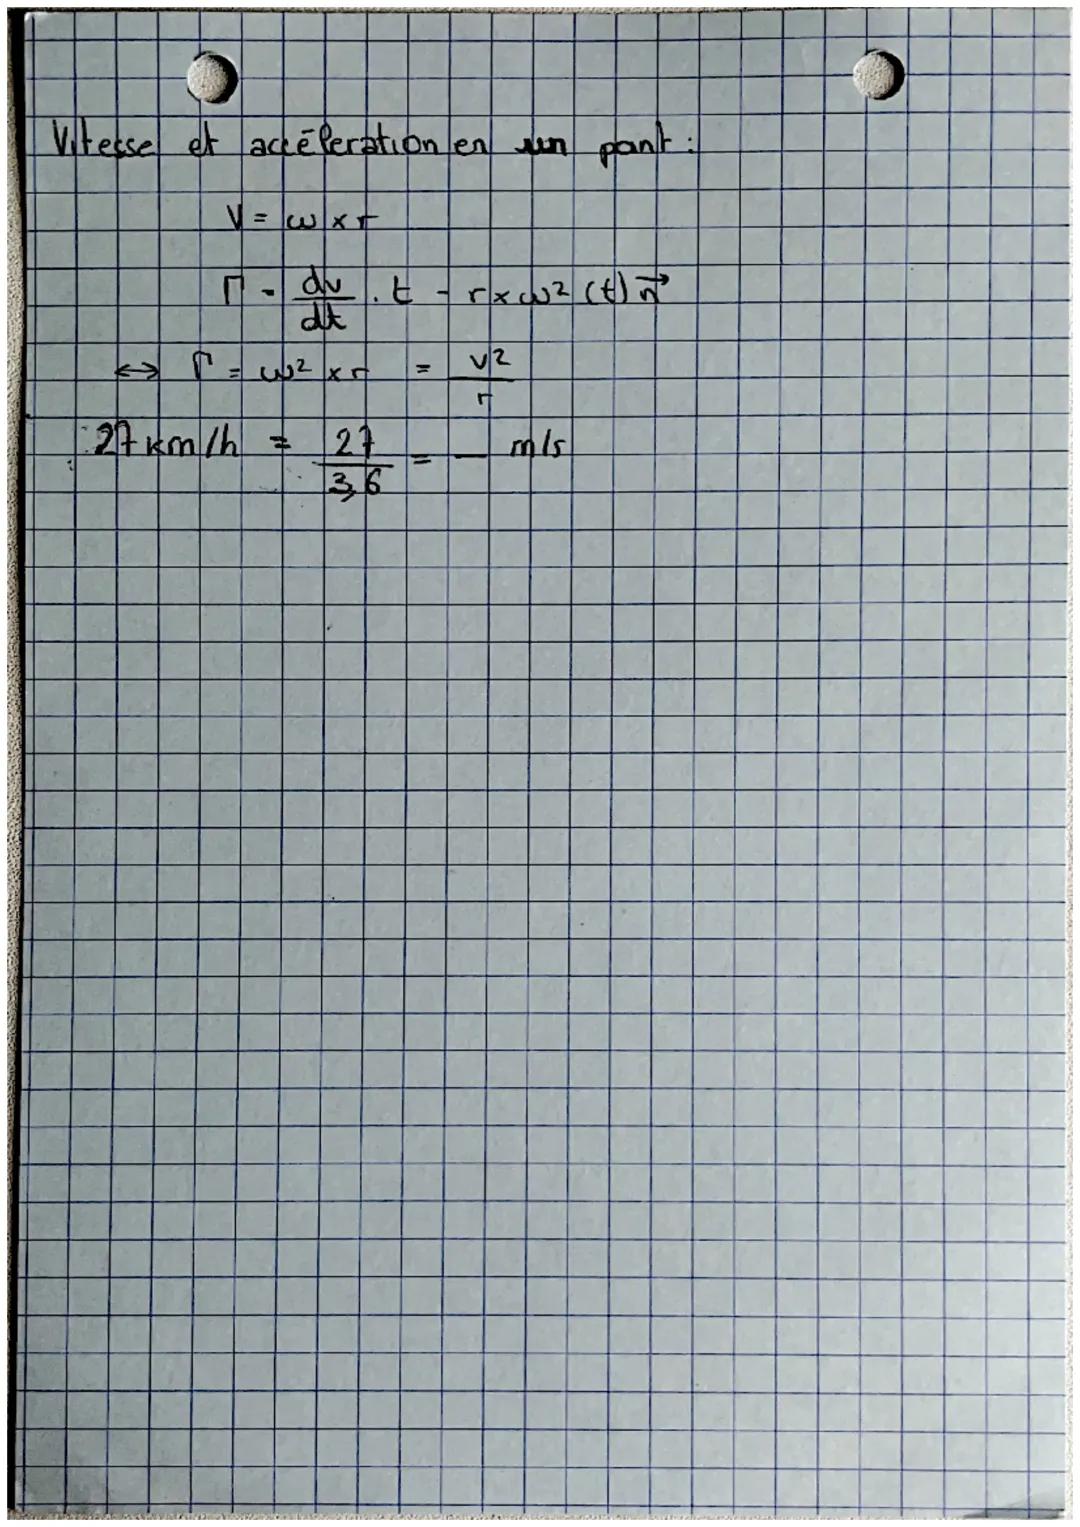 Vitesse et accéleration en un point :
V = ω × r
Γ = dv/dt . t - r × ω² (t) n⃗
↔ Γ = ω² × r = v²/r
27 km/h = 27/3,6 = _ m/s